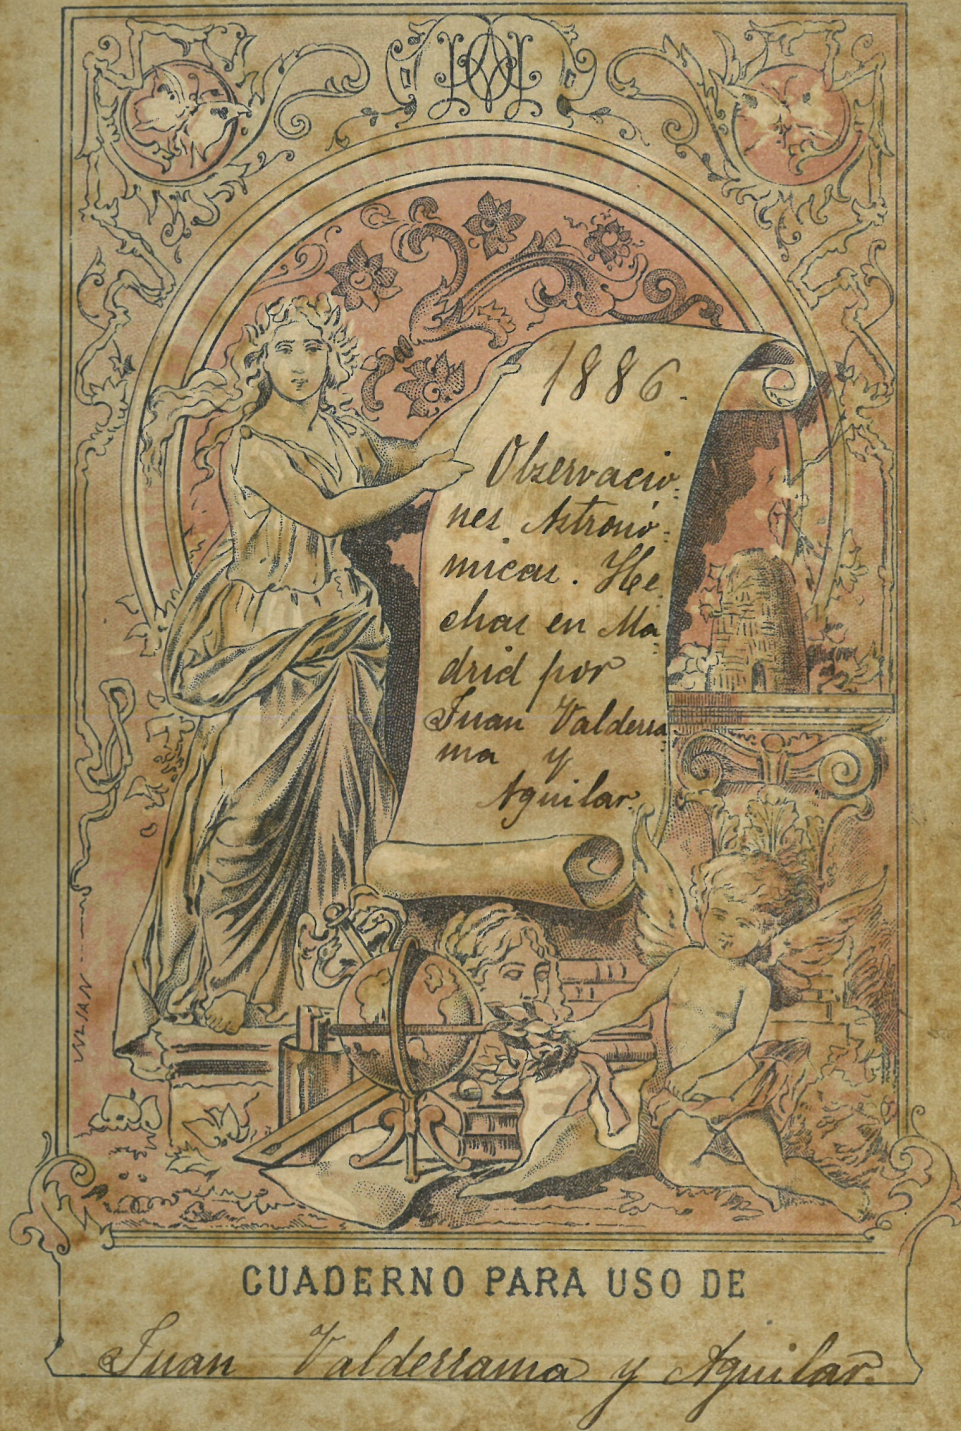 1886.
Observacio-
nes Astronó-
micas. He-
chas en Ma-
drid por
Juan Valderra-
ma y
Aguilar.
CUADERNO PARA USO DE
Juan Valderrama y Aguilar.